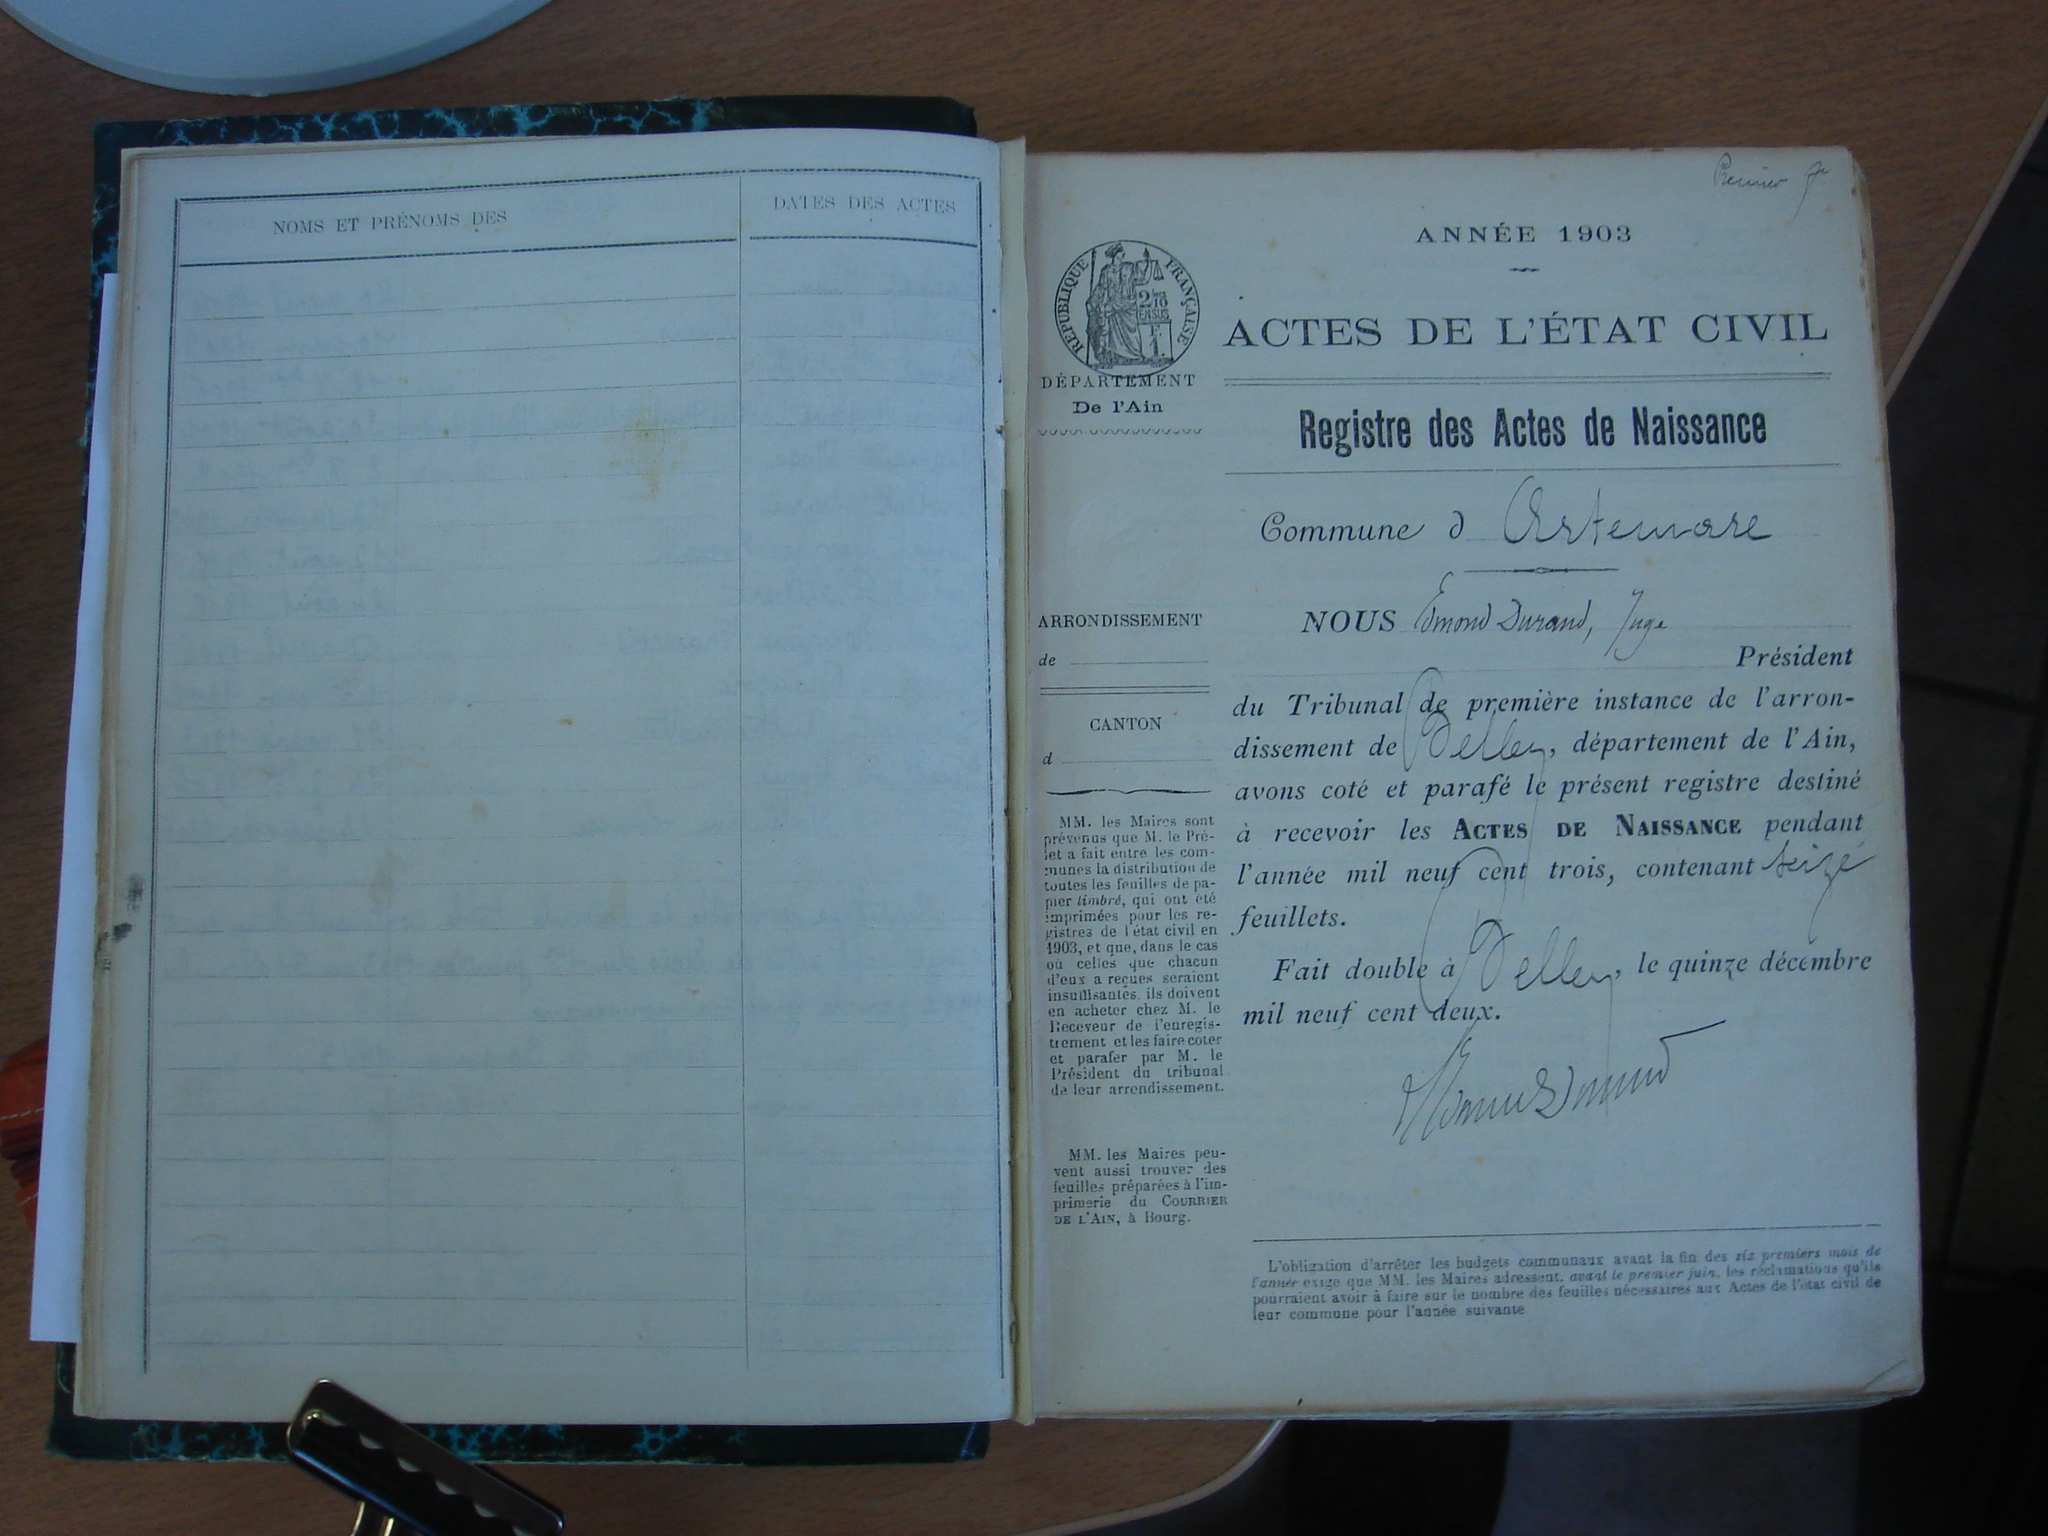 NOMS ET PRÉNOMS DES
DATES DES ACTES
Premier
ANNÉE 1903
RÉPUBLIQUE FRANÇAISE
ACTES DE L'ÉTAT CIVIL
DÉPARTEMENT
De l'Ain
Registre des Actes de Naissance
Commune d Artemare
ARRONDISSEMENT
de
CANTON
d
MM. les Maires sont
prévenus que M. le Pré-
fet a fait entre les com-
munes la distribution de
toutes les feuilles de pa-
pier timbré, qui ont été
imprimées pour les re-
gistres de l'état civil en
1903, et que, dans le cas
où celles que chacun
d'eux a reçues seraient
insuffisantes, ils doivent
en acheter chez M. le
Receveur de l'enregis-
trement et les faire coter
et parafer par M. le
Président du tribunal
de leur arrondissement.
MM. les Maires peu-
vent aussi trouver des
feuilles préparées à l'im-
primerie du COURRIER
DE L'AIN, à Bourg.
NOUS Edmond Durand, Juge
Président
du Tribunal de première instance de l'arron-
dissement de Belley, département de l'Ain,
avons coté et parafé le présent registre destiné
à recevoir les ACTES DE NAISSANCE pendant
l'année mil neuf cent trois, contenant seize
feuillets.
Fait double à Belley, le quinze décembre
mil neuf cent deux.
L'obligation d'arrêter les budgets communaux avant la fin des six premiers mois de
l'année exige que MM. les Maires adressent, avant le premier juin, les réclamations qu'ils
pourraient avoir à faire sur le nombre des feuilles nécessaires aux Actes de l'état civil de
leur commune pour l'année suivante